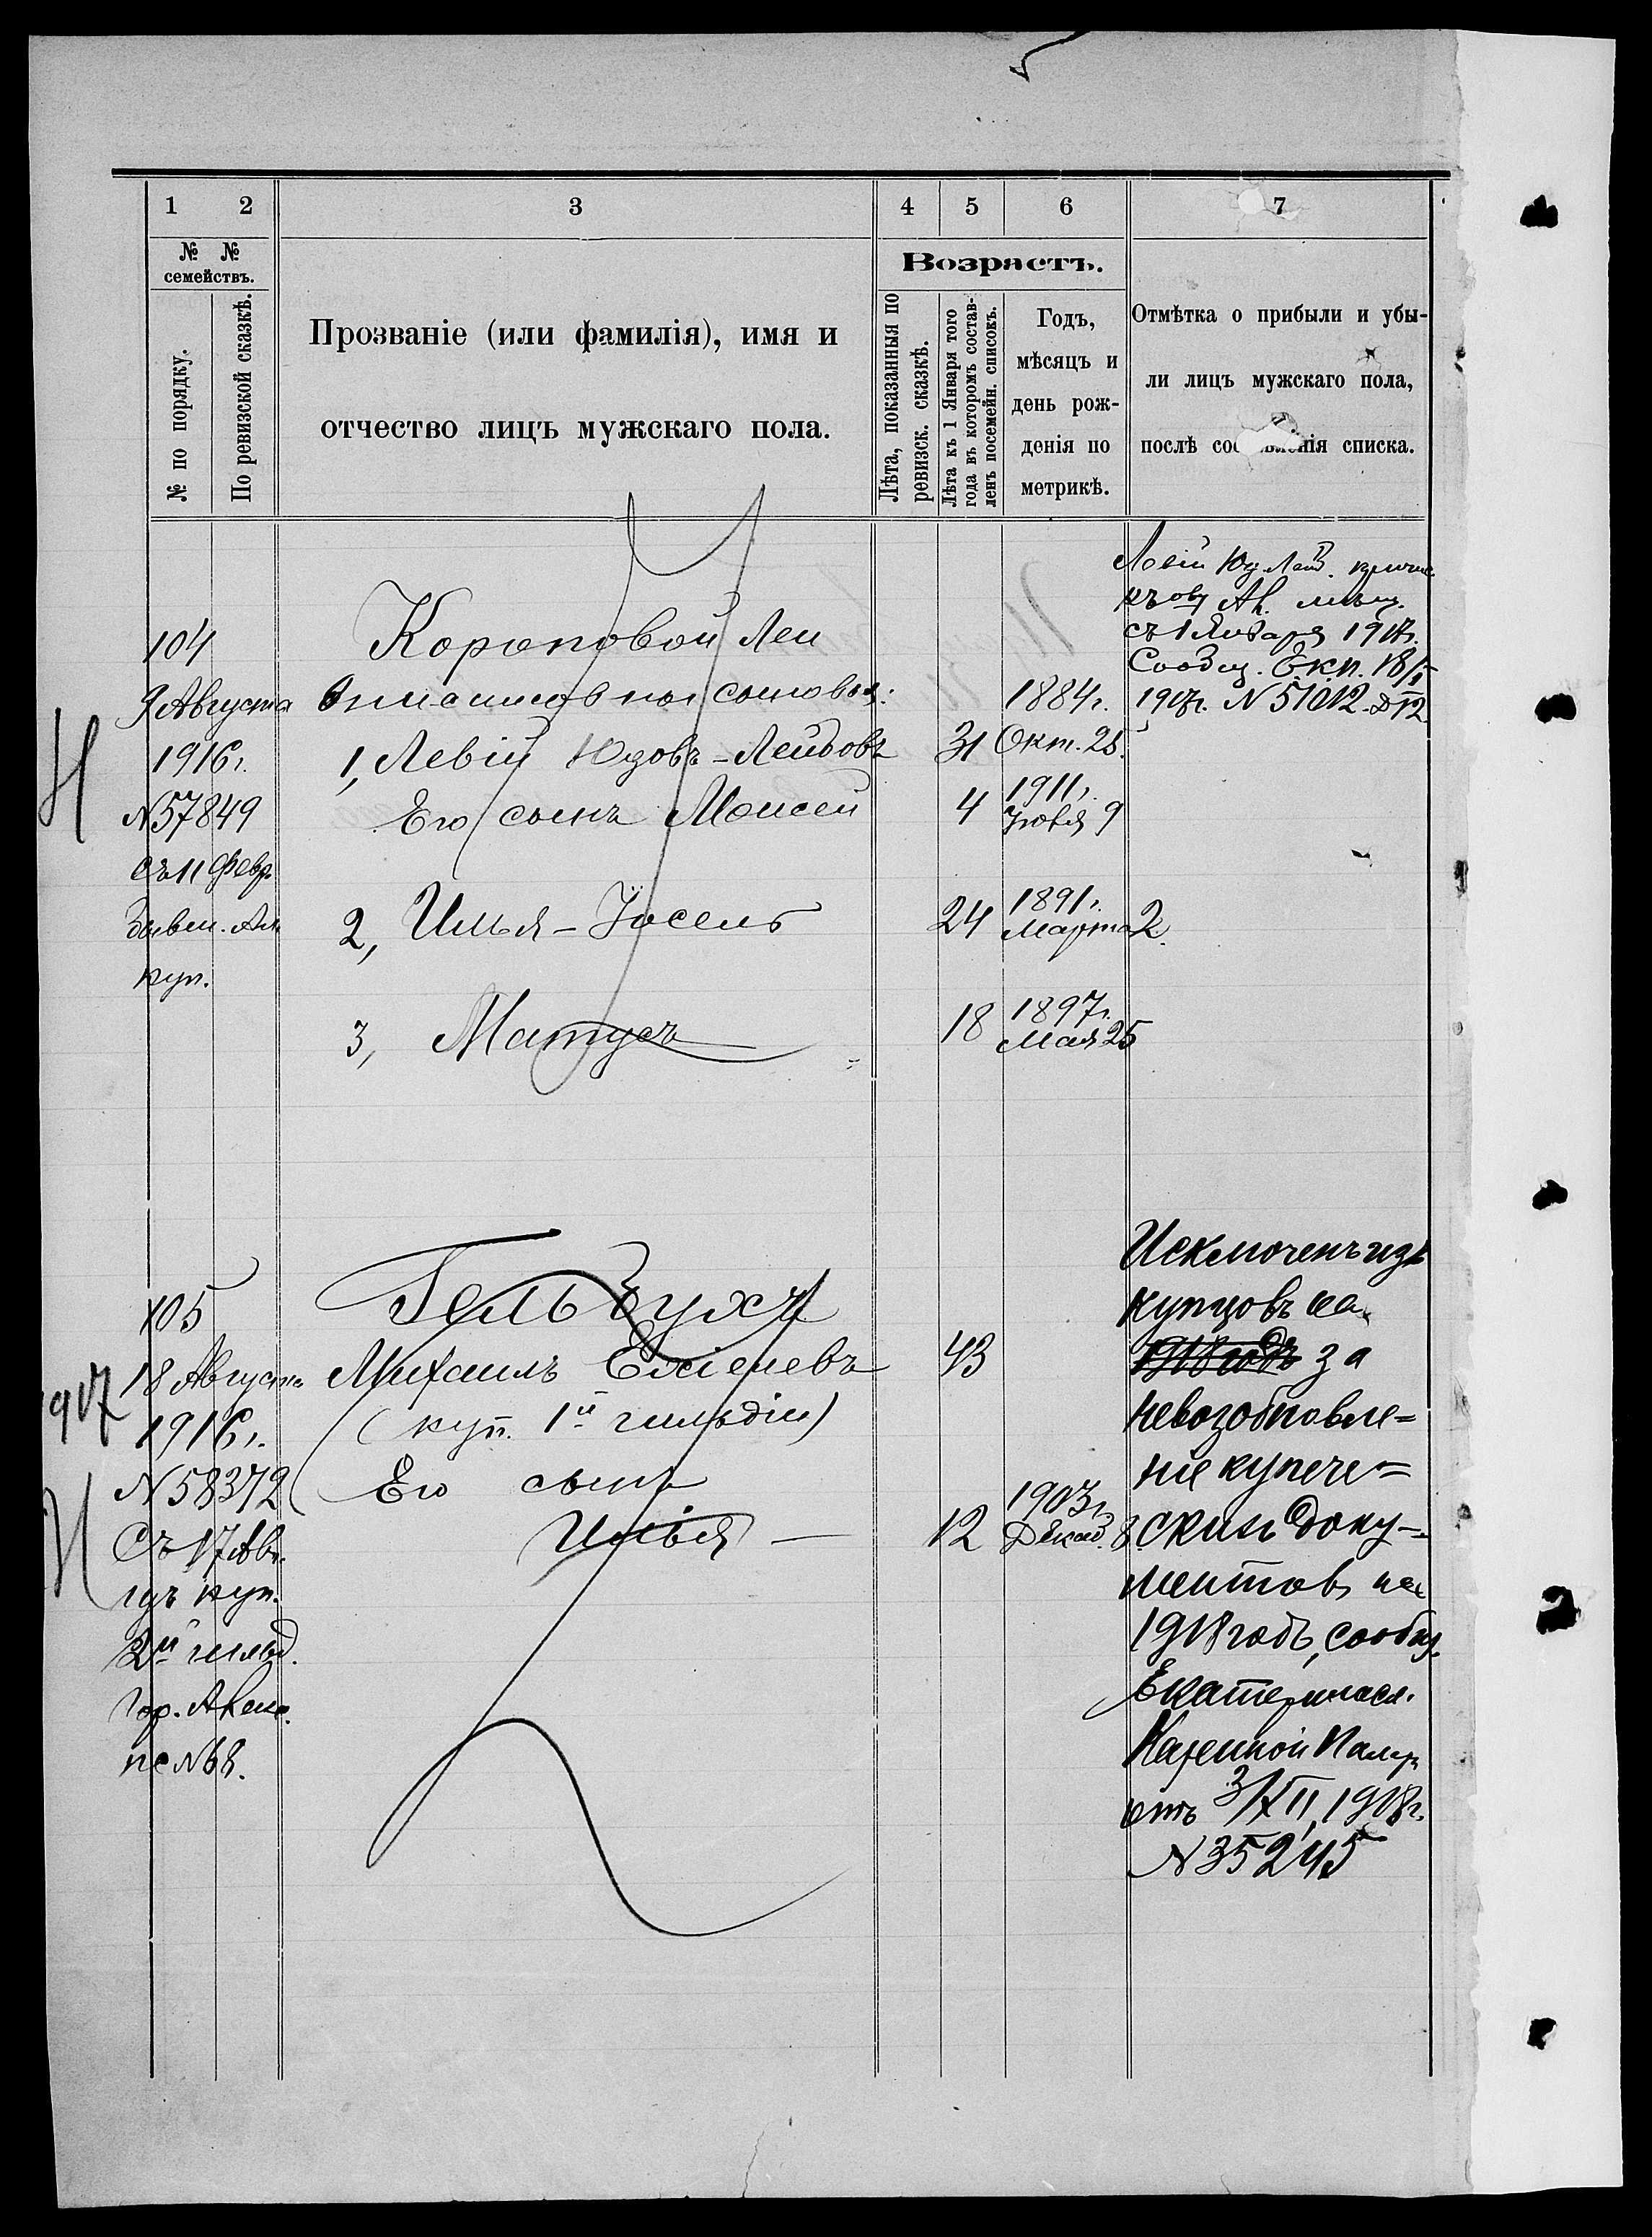 1 2 3 4 5 6 7
№ № семействъ.
№ по порядку.
По ревизской сказкѣ.
Прозваніе (или фамилія), имя и
отчество лицъ мужскаго пола.
Возрастъ.
Лѣта, показанныя по
ревизск. сказкѣ.
Лѣта къ 1 Января того
года въ которомъ состав-
ленъ посемейн. списокъ.
Годъ,
мѣсяцъ и
день рож-
денія по
метрикѣ.
Отмѣтка о прибыли и убы-
ли лицъ мужскаго пола,
послѣ составленія списка.
104
9 Августа
1916 г.
N 57849
съ 11 Февр.
куп.
Короповой Леи
сыновья:
1, Левій Юдовъ-Лейбовъ 31 1884 г. Окт. 28.
Его сынъ Моисей 4 1911 г. 9
2, Илья-Іосель 24 1891 г. Марта 2.
3, Матусъ 18 1897 г. Мая 25
Левій Юд. Лейб.
Ал. мѣщ.
съ 1 Января 1917 г.
Сообщ. Е.к.п. 18/I
1917 г. N 51012.
105
18 Августа
1916 г.
N 58372
Съ 17 Авг.
изъ куп.
2й гильд.
гор. Алекс.
пс N 68.
1917
Гельбухъ
Михаилъ Ехіелевъ 43
(куп. 1й гильдіи)
Его сынъ
Илья - 12 1903 г. Декаб. 8.
Исключенъ изъ
купцовъ на
1918 годъ за
невозобновле=
ніе купече=
скихъ доку-
ментовъ на
1918 годъ, сообщ.
Екатериносл.
Казенной Палаты
отъ 3/XII, 1918 г.
N 35245